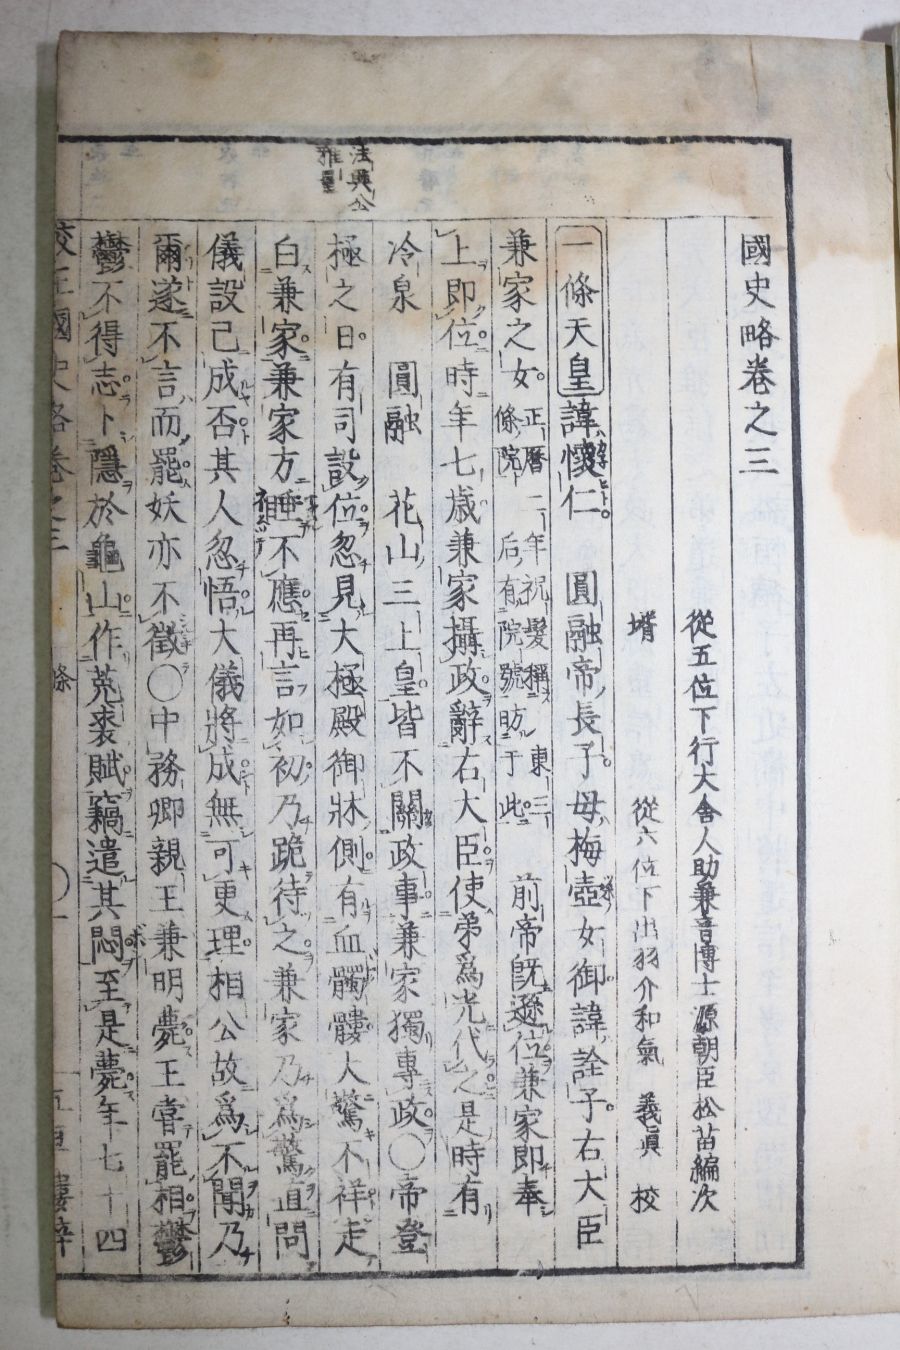 國史略卷之三
從五位下行大舍人助兼音博士源朝臣松苗編次
壻 從六位下出羽介和氣 義眞 校
一條天皇諱懷仁。圓融帝長子。母梅壺女御諱詮子。右大臣
兼家之女。正曆二年祝髮稱東三條院。后有院號昉于此。前帝旣遜位兼家即奉
上即位時年七歲兼家攝政辭右大臣使弟爲光代之是時有
冷泉 圓融 花山三上皇皆不關政事兼家獨專政○帝登
法興公雅量
極之日有司設位忽見大極殿御牀側有血髑髏大驚不祥走
白兼家兼家方睡不應再言如初乃跪待之兼家乃爲驚直問
儀設已成否其人忽悟大儀將成無可更理相公故爲不聞乃
爾遂不言而罷妖亦不徵○中務卿親王兼明薨王嘗罷相鬱
鬱不得志卜隱於龜山作菟裘賦竊遣其悶至是薨年七十四
校正國史略卷之三 條 ○一 五車樓梓